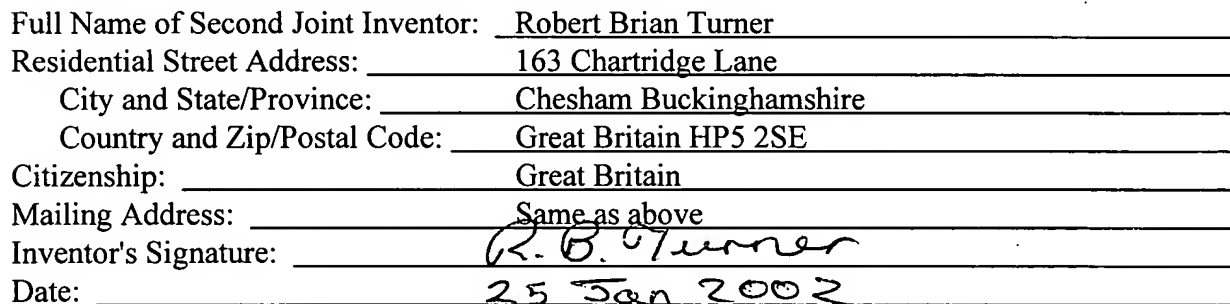 Full Name of Second Joint Inventor: Robert Brian Turner
Residential Street Address: 163 Chartridge Lane
City and State/Province: Chesham Buckinghamshire
Country and Zip/Postal Code: Great Britain HP5 2SE
Citizenship: Great Britain
Mailing Address: Same as above
Inventor's Signature: R. B. Turner
Date: 25 Jan 2002